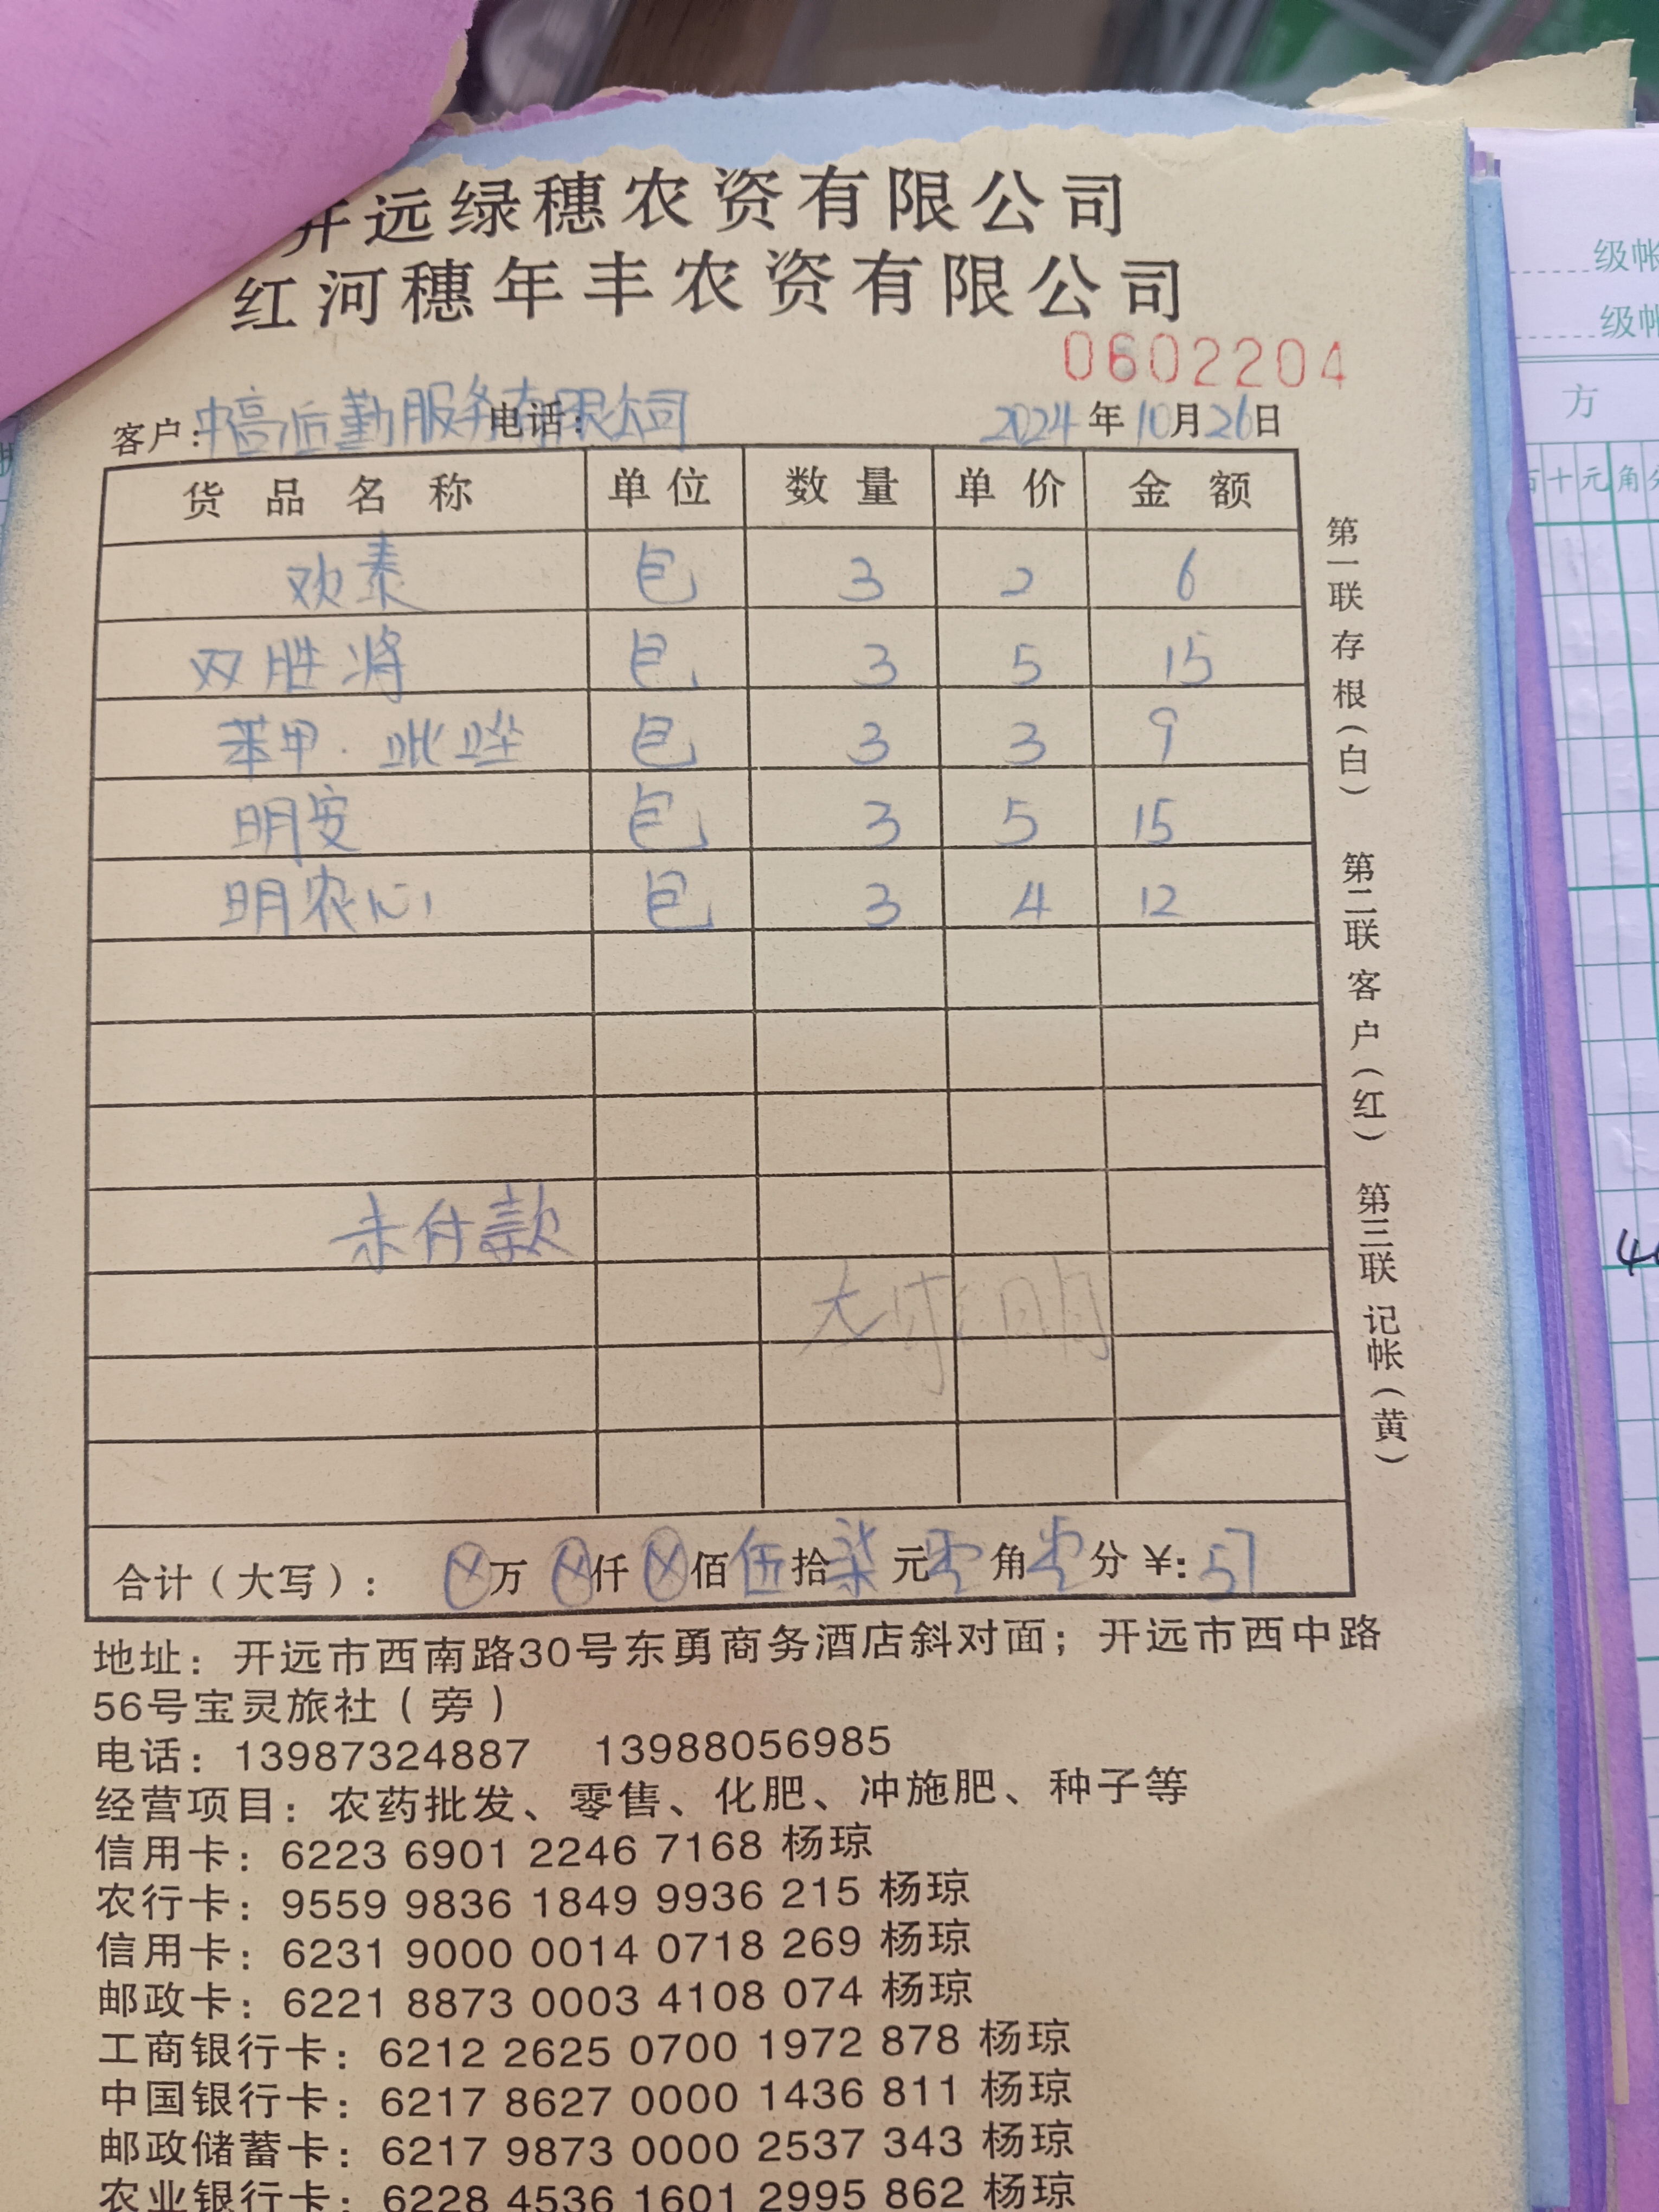 开远绿穗农资有限公司
红河穗年丰农资有限公司
0602204
客户:中高后勤服务有限公司 电话: 2024年10月26日
货品名称 单位 数量 单价 金额
欢素 包 3 2 6
双胜将 包 3 5 15
苯甲·吡唑 包 3 3 9
明安 包 3 5 15
明农心 包 3 4 12
未付款
合计(大写): ⊗万⊗仟⊗佰伍拾柒元零角零分¥:57
第一联存根(白) 第二联客户(红) 第三联记帐(黄)
地址:开远市西南路30号东勇商务酒店斜对面;开远市西中路
56号宝灵旅社(旁)
电话:13987324887 13988056985
经营项目:农药批发、零售、化肥、冲施肥、种子等
信用卡:6223 6901 2246 7168 杨琼
农行卡:9559 9836 1849 9936 215 杨琼
信用卡:6231 9000 0014 0718 269 杨琼
邮政卡:6221 8873 0003 4108 074 杨琼
工商银行卡:6212 2625 0700 1972 878 杨琼
中国银行卡:6217 8627 0000 1436 811 杨琼
邮政储蓄卡:6217 9873 0000 2537 343 杨琼
农业银行卡:6228 4536 1601 2995 862 杨琼
级帐
级帐
方
百十元角分